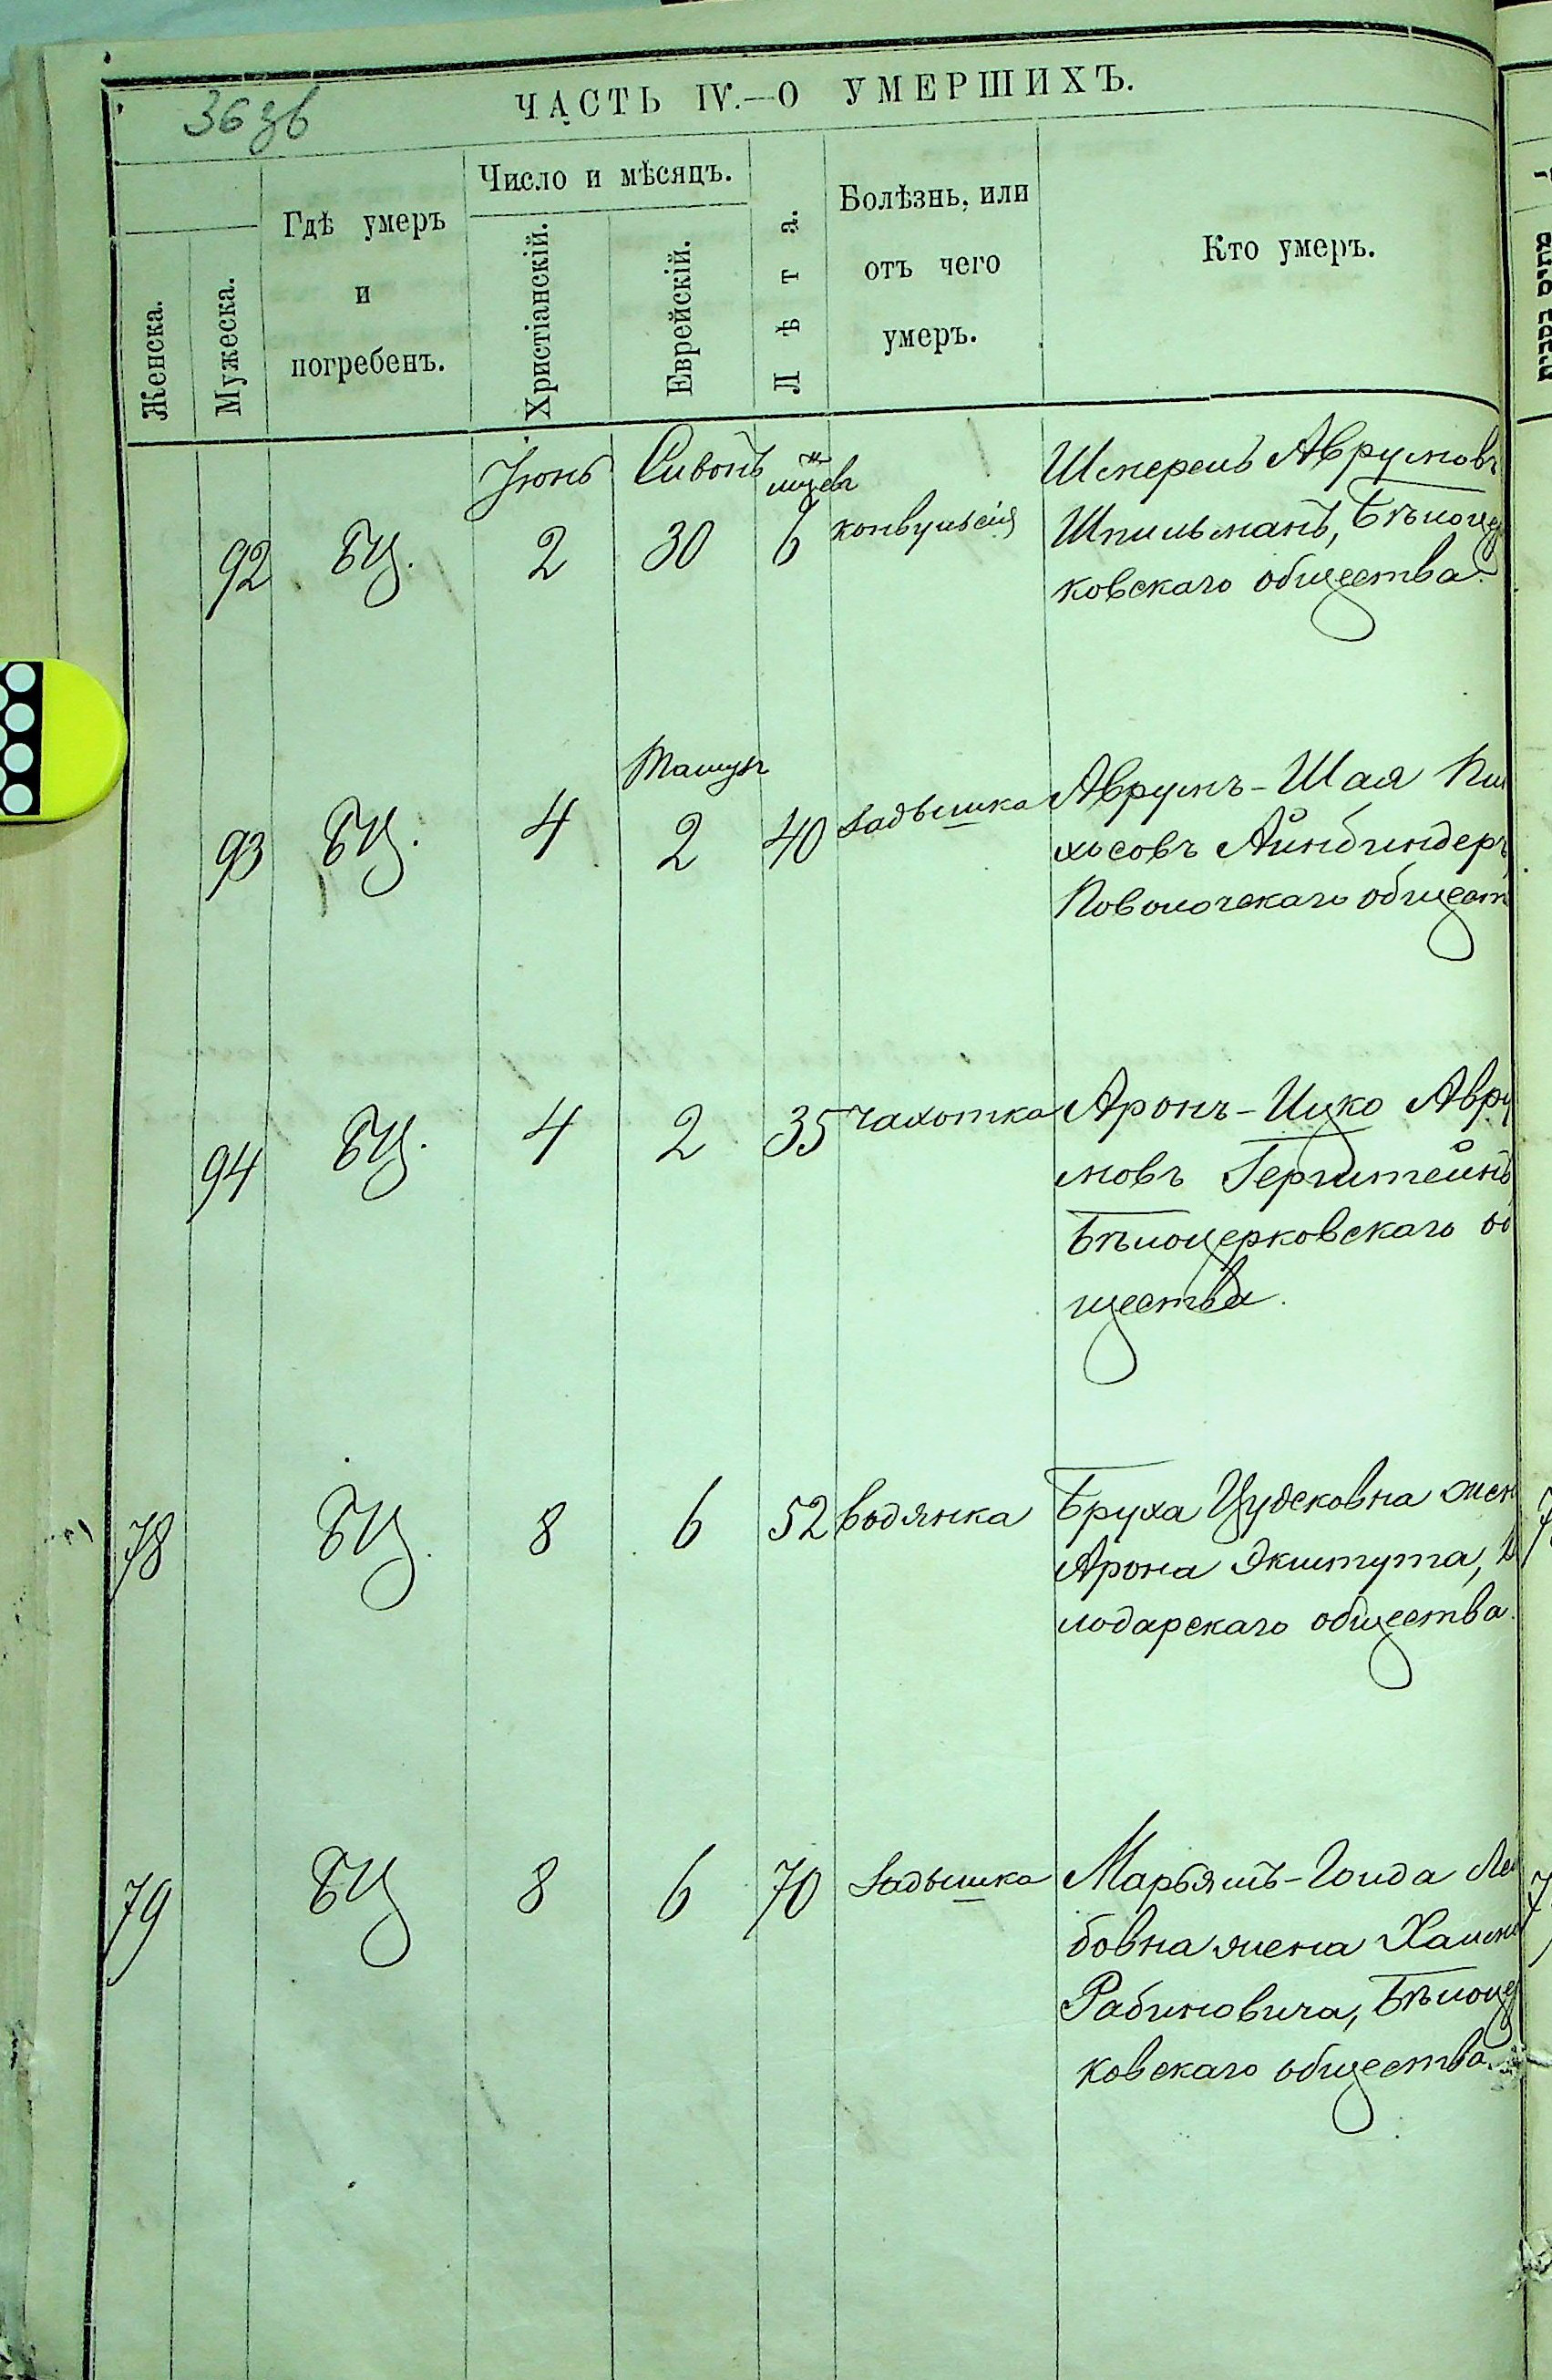 36 зв
ЧАСТЬ IV.—О УМЕРШИХЪ.
Женска.
Мужеска.
Гдѣ умеръ
и
погребенъ.
Число и мѣсяцъ.
Христіанскій.
Еврейскій.
Лѣта.
Болѣзнь, или
отъ чего
умеръ.
Кто умеръ.
Іюнь Сивонъ м-цевъ Шмерель Аврумовъ
92 БЦ. 2 30 6 конвульсія Шпильманъ, Бѣлоцер
ковскаго общества.
Тамузъ
93 БЦ. 4 2 40 Задышка Аврумъ-Шая Пин
хосовъ Айнбиндеръ,
Поволочскаго общест
94 БЦ. 4 2 35 чахотка Аронъ-Ицко Авру
мовъ Герштейнъ,
Бѣлоцерковскаго об
щества.
78 БЦ. 8 6 52 водянка Бруха Цудековна жен
Арона Экштута, В
лодарскаго общества.
79 БЦ 8 6 70 Задышка Марьямъ-Голда Лей
бовна жена Хаима
Рабиновича, Бѣлоцер
ковскаго общества.